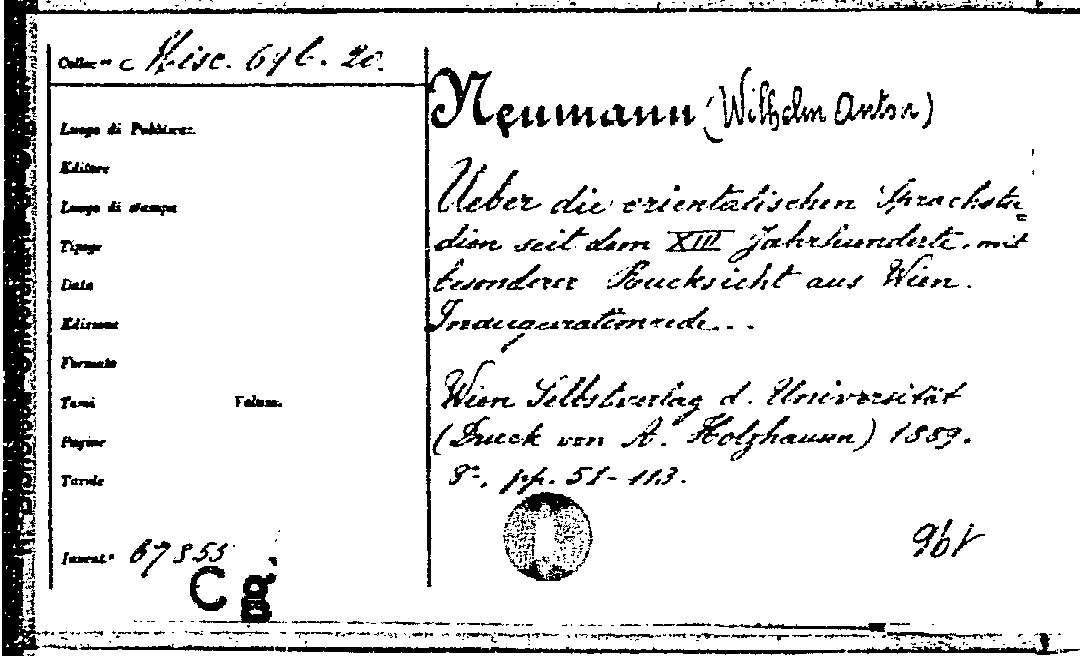 Colloc.ne Misc. 67 b. 20.
Neumann (Wilhelm Anton)
Luogo di Pubblicaz.
Editore
Luogo di stampa
Tipogr.
Data
Edizione
Formato
Tomi Volum.
Pagine
Tavole
Ueber die orientalischen Sprachstu=
dien seit dem XIII Jahrhunderte. mit
besonderer Rucksicht aus Wien.
Inaugurationrede...
Wien Selbstverlag d. Universität
(Druck von A. Holzhausen) 1889.
8°, pp. 51-113.
Invent.° 67855
C